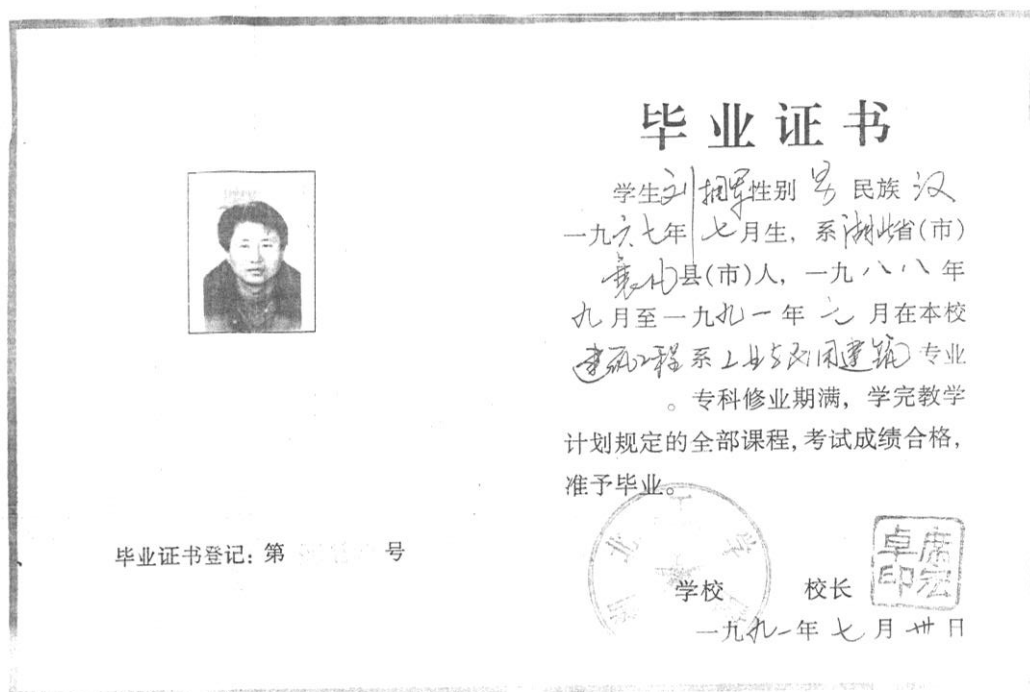 毕业证书
学生刘拥军性别男民族汉
一九六七年七月生，系湖北省(市)
襄北县(市)人，一九八八年
九月至一九九一年七月在本校
建筑工程系工业与民用建筑专业
。专科修业期满，学完教学
计划规定的全部课程,考试成绩合格，
准予毕业。
毕业证书登记：第 号
北 工 学
学校 校长
席宏卓印
一九九一年七月卅日